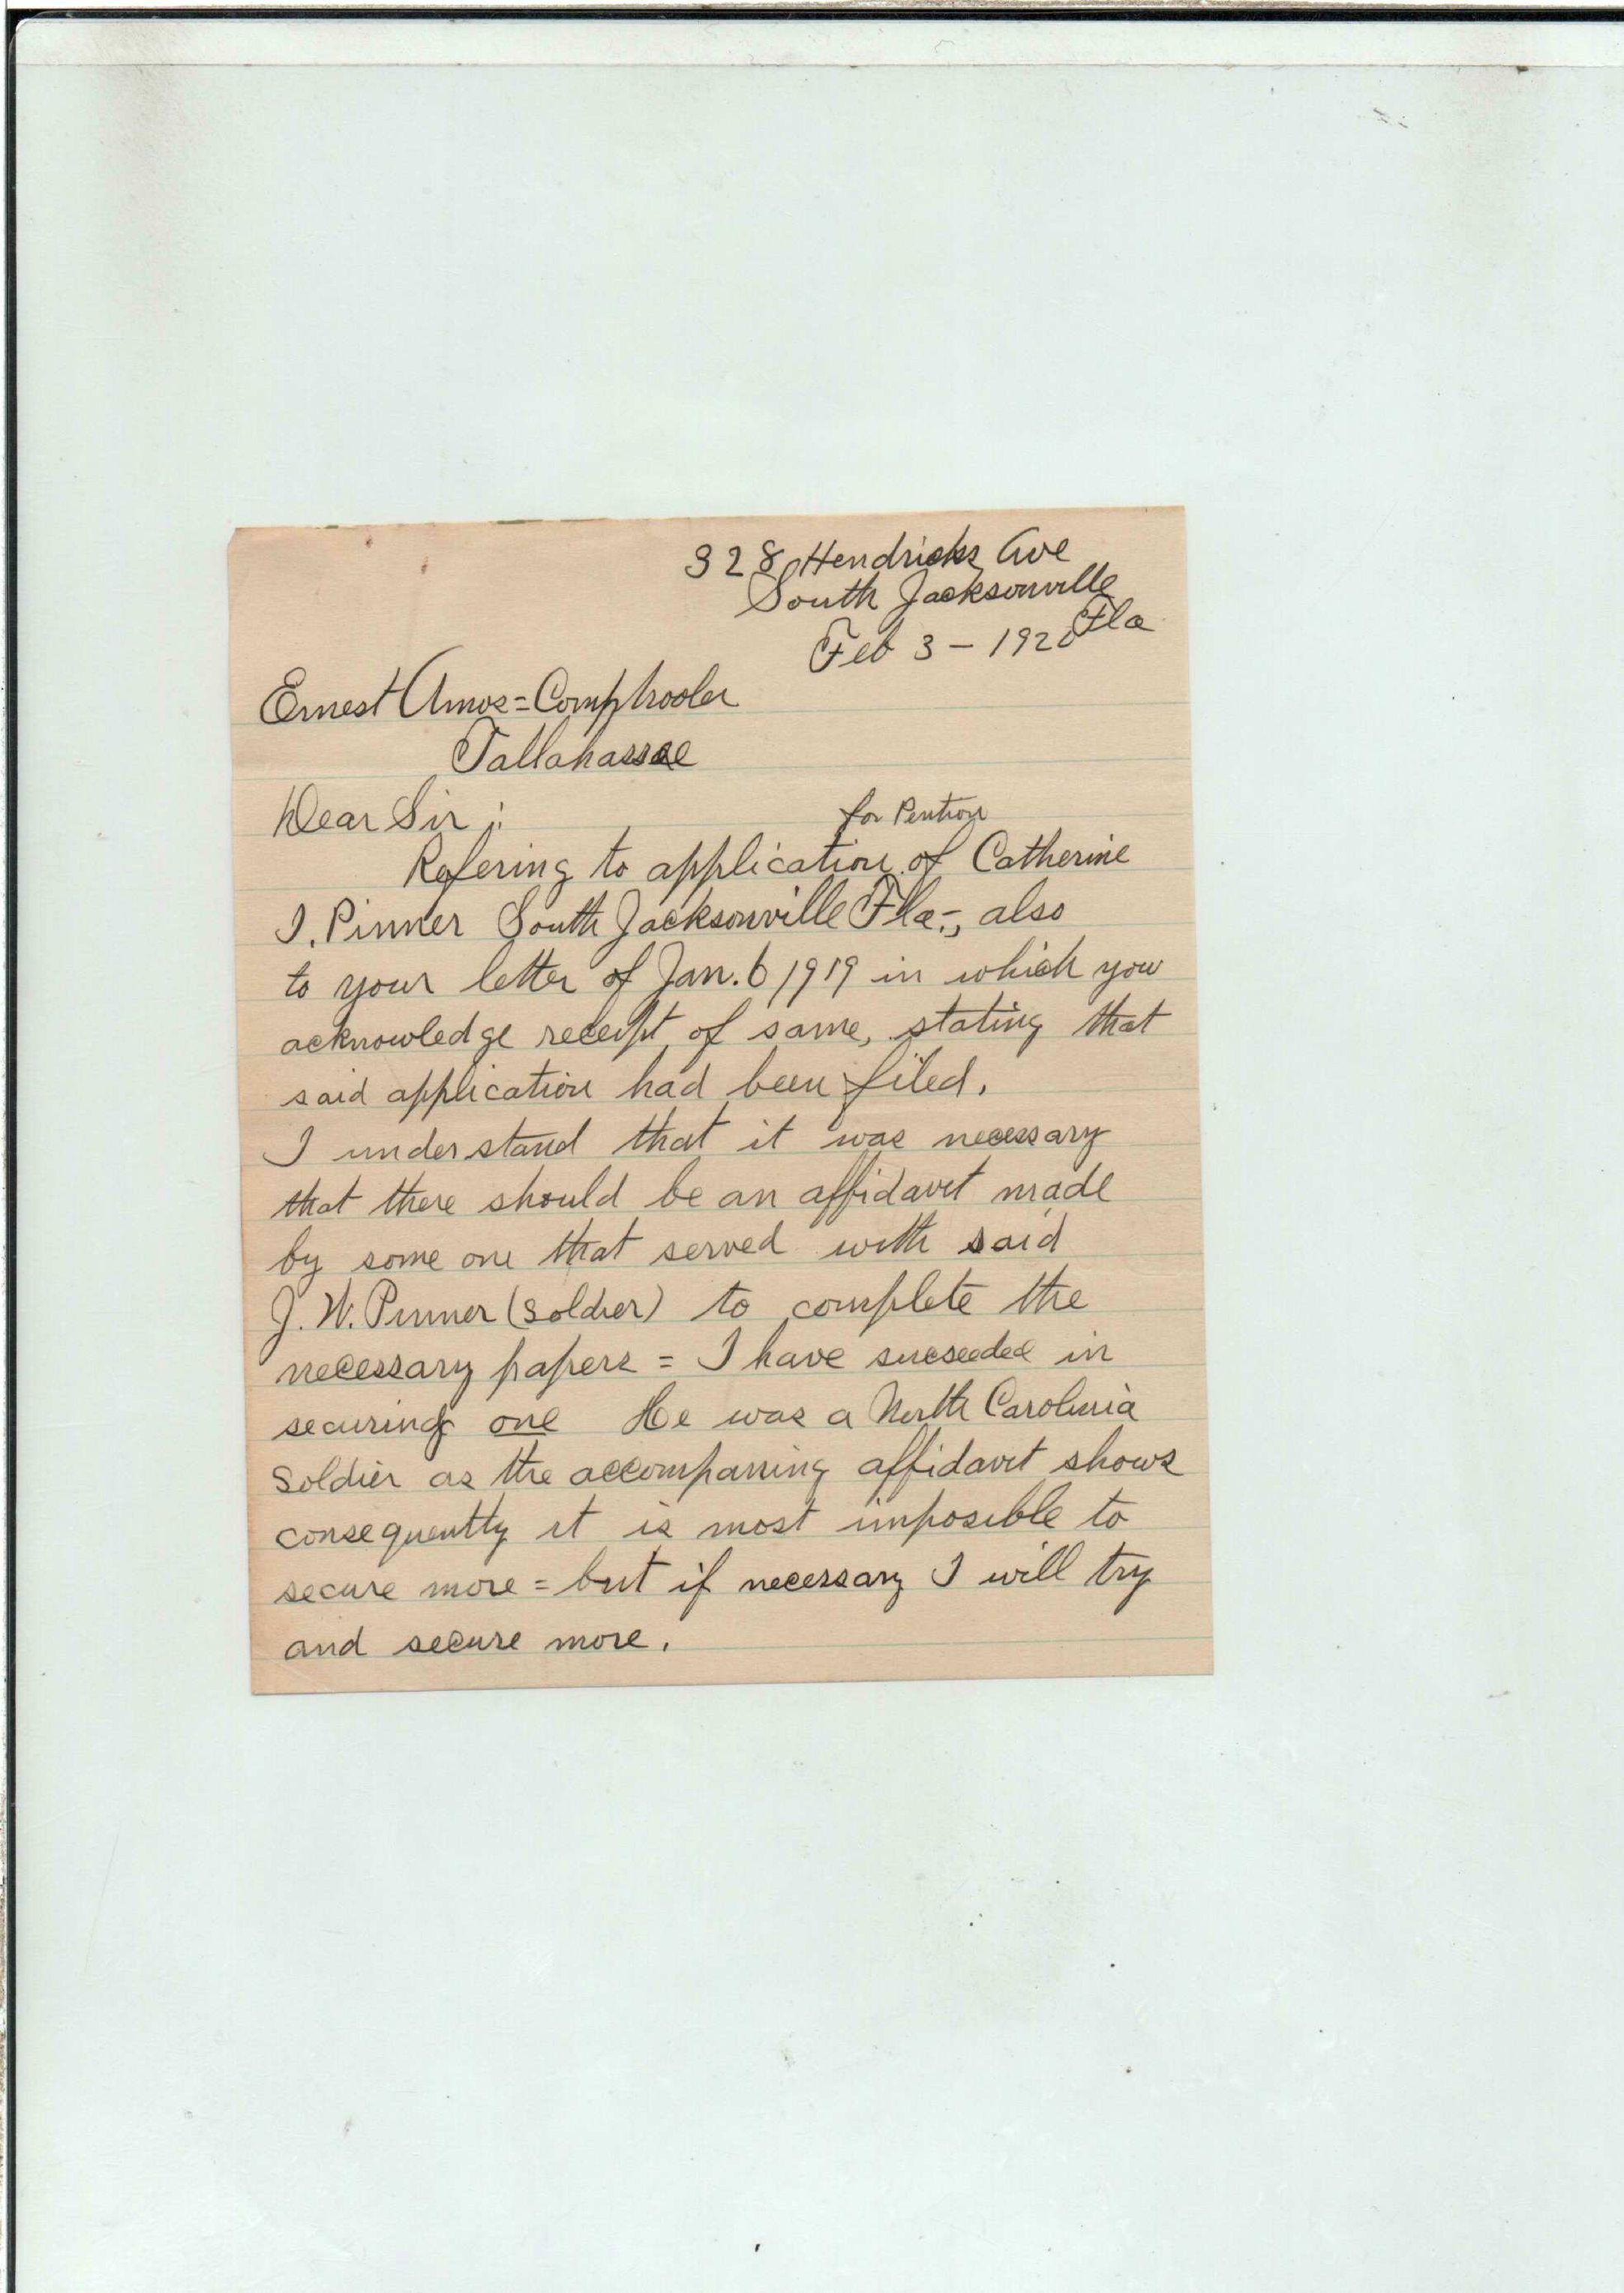 328 Hendricks Ave
South Jacksonville
Fla
Feb 3 - 1920
Ernest Amos = Comptrooler
Tallahassee
Dear Sir ;
for Pention
Refering to application of Catherine
I. Pinner South Jacksonville Fla-, also
to your letter of Jan. 6 1919 in which you
acknowledge receipt of same, stating that
said application had been filed.
I understand that it was necessary
that there should be an affidavit made
by some one that served with said
J. W. Pinner (soldier) to complete the
necessary papers = I have sucseeded in
securing one He was a North Carolinia
soldier as the accompaning affidavit shows
consequently it is most imposible to
secure more = but if necessary I will try
and secure more.